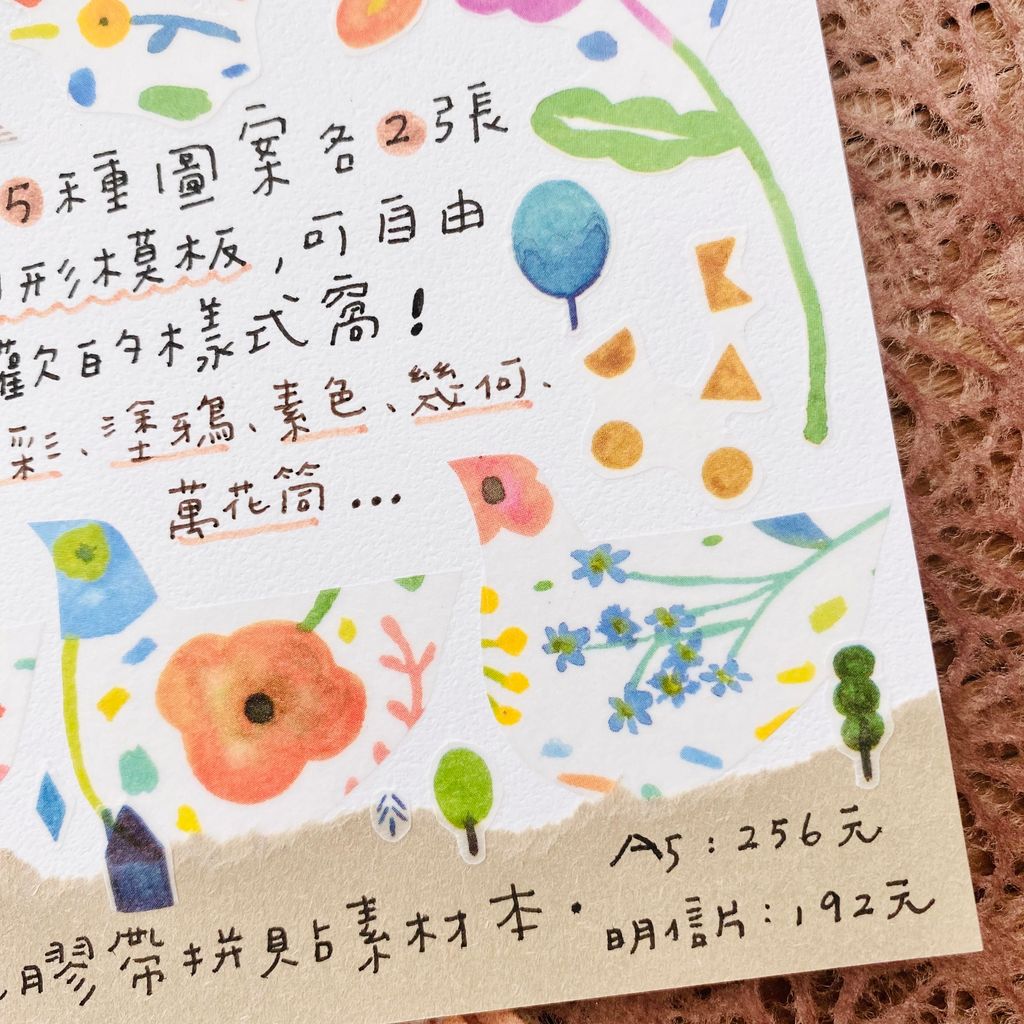 5種圖案各2張
形模板,可自由
歡的樣式窩!
彩、塗鴉、素色、幾何、
萬花筒...
膠帶拼貼素材本·
A5:256元
明信片:192元